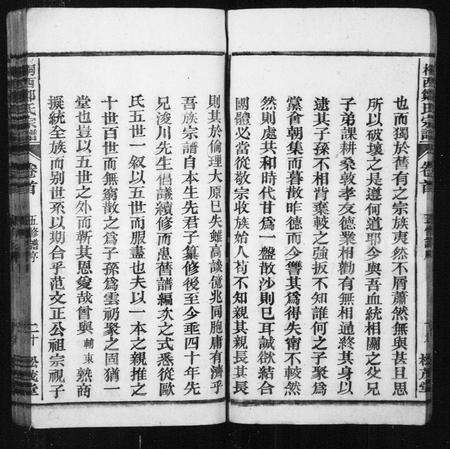 也而獨於舊有之宗族夷然不屑蕭然無與甚且思
所以破壞之是遵何道耶今與吾血統相關之父兄
子弟課耕桑敦孝友德業相勸有無相通終其身以
逮其子孫不相背棄較之強扳不知誰何之子聚爲
黨會朝集而暮散昨德而今讐其爲得失甯不較然
然則處共和時代甘爲一盤散沙則已耳誠欲結合
團體必當從敬宗收族始人苟不知親其親長其長
則其於倫理大原已失雖高談億兆同胞庸有濟乎
吾族宗譜自本生先君子纂修後至今垂四十年先
兄浚川先生倡議續修而舊譜編次之式悉從歐
氏五世一敘以五世而服盡也夫以一本之親推之
十世百世而無窮散之爲子孫爲雲礽聚之固猶一
堂也豈以五世之外而靳其恩愛哉曾與輔東熟商
擬統全族而别世系以期合乎范文正公祖宗視子
梅西鄒氏宗譜
卷首
五修譜序
二十
松茂堂